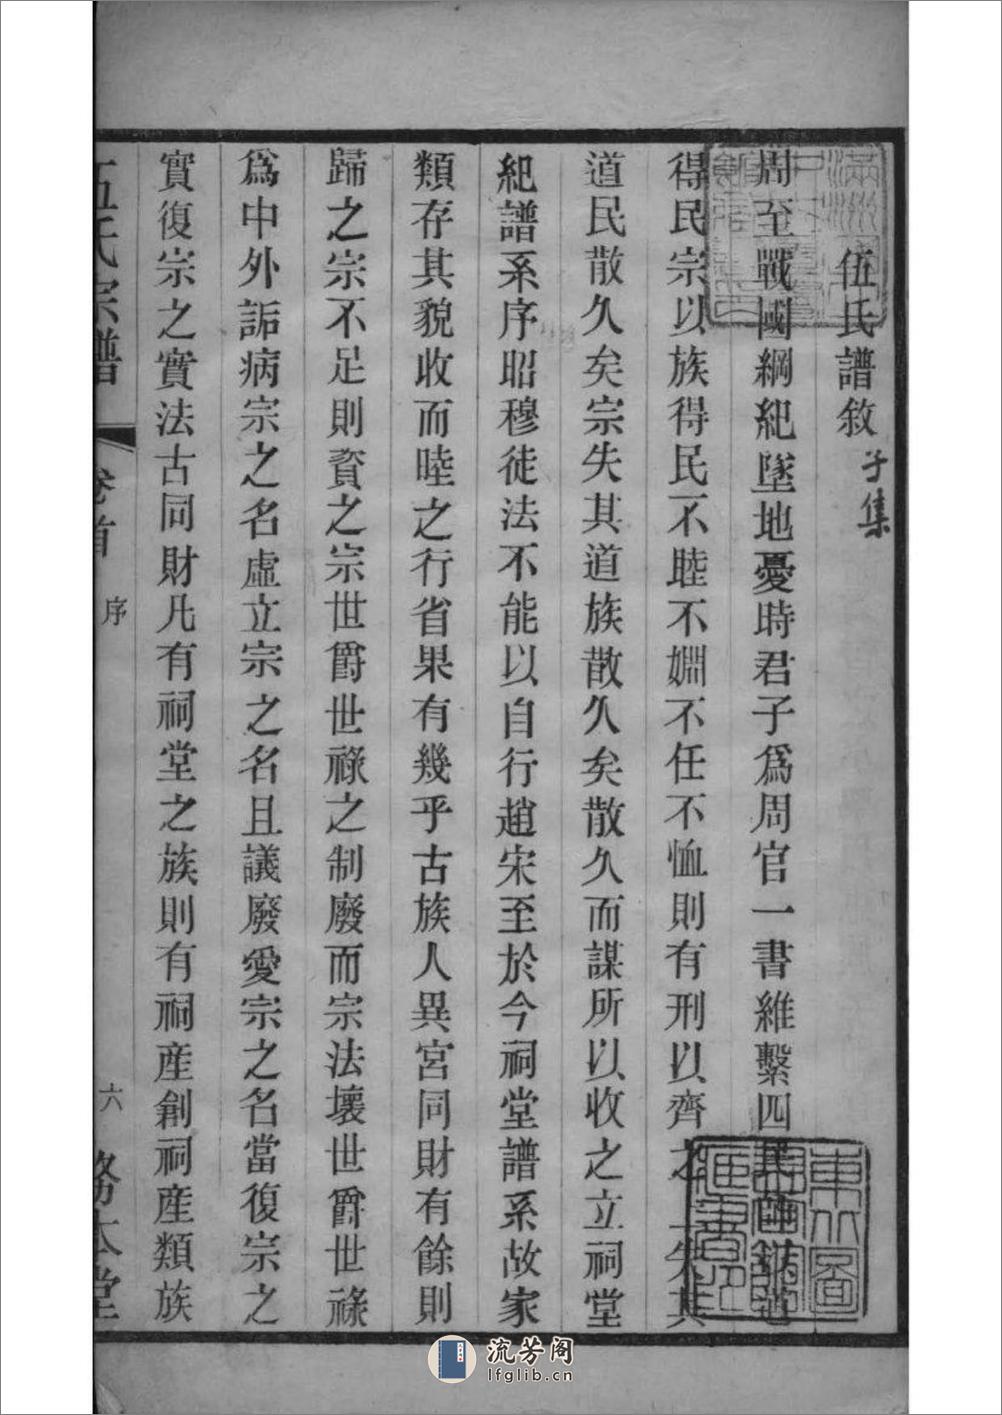 伍氏譜敘
子集
周至戰國綱紀墜地憂時君子爲周官一書維繫四民師以道
得民宗以族得民不睦不婣不任不恤則有刑以齊之上失其
道民散久矣宗失其道族散久矣散久而謀所以收之立祠堂
紀譜系序昭穆徒法不能以自行趙宋至於今祠堂譜系故家
類存其貌收而睦之行省果有幾乎古族人異宮同財有餘則
歸之宗不足則資之宗世爵世祿之制廢而宗法壞世爵世祿
爲中外詬病宗之名虛立宗之名且議廢愛宗之名當復宗之
實復宗之實法古同財凡有祠堂之族則有祠産創祠産類族
伍氏宗譜
卷首
序
六
務本堂
流芳阁
lfglib.cn